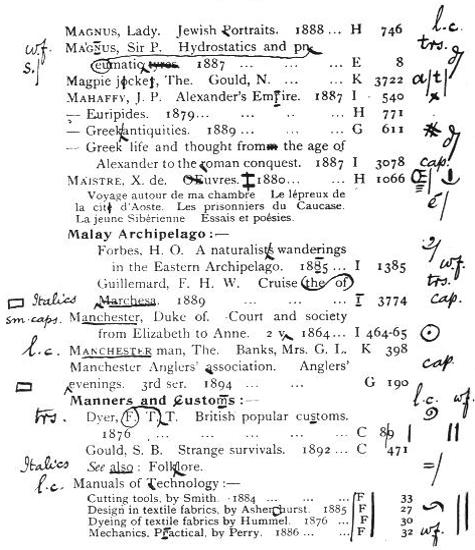 MAGNUS, Lady. Jewish Portraits. 1888 ... H 746 l.c.
w.f. MAGNUS, Sir P. Hydrostatics and pn trs.
s./ eumatic tyres. 1887 ... ... ... E 8
Magpie jocket, The. Gould, N. ... ... K 3722 a/t/
MAHAFFY, J. P. Alexander's Empire. 1887 I 540 x
— Euripides. 1879... ... ... ... H 771
— Greek antiquities. 1889 ... ... G 611 #
— Greek life and thought from the age of
Alexander to the roman conquest. 1887 I 3078 cap.
MAISTRE, X. de. Œuvres. 1880... ... H 1066 Œ
Voyage autour de ma chambre Le lépreux de
la cité d'Aoste. Les prisonniers du Caucase. é/
La jeune Sibérienne Essais et poésies.
Malay Archipelago:—
Forbes, H. O. A naturalists wanderings
in the Eastern Archipelago. 1885 ... I 1385 w.f.
Guillemard, F. H. W. Cruise (the of) trs.
Italics Marchesa. 1889 ... ... I 3774 cap.
sm. caps. Manchester, Duke of. Court and society
from Elizabeth to Anne. 2 v. 1864... I 464-65 ⊙
l.c. MANCHESTER man, The. Banks, Mrs. G. L. K 398
Manchester Anglers' association. Anglers' cap.
evenings. 3rd ser. 1894 ... ... ... G 190
Manners and Customs:— l.c. w.f.
trs. Dyer, F. T. T. British popular customs.
1876 ... ... ... ... ... C 89
Gould, S. B. Strange survivals. 1892 ... C 471
Italics See also: Folklore. =/
l.c. Manuals of Technology:—
Cutting tools, by Smith. 1884 ... ... ... F 33
Design in textile fabrics, by Ashenhurst. 1885 F 27
Dyeing of textile fabrics by Hummel. 1876 ... F 30
Mechanics, Practical, by Perry. 1886 ... ... F 32 w.f.